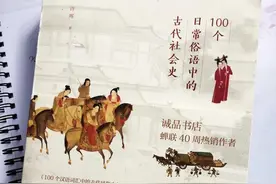 100个
日常俗语中的
古代社会史
诚品书店
蝉联40周热销作者